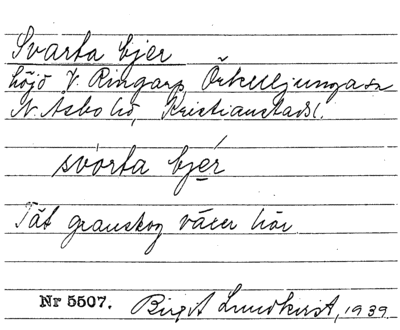 Svarta bjer
höjd V. Ringarp, Örkelljunga sn
N. Åsbo hd, Kristianstads l.
svórta bjér
Tät granskog växer här
Nr 5507. Birgit Lundkvist, 1939